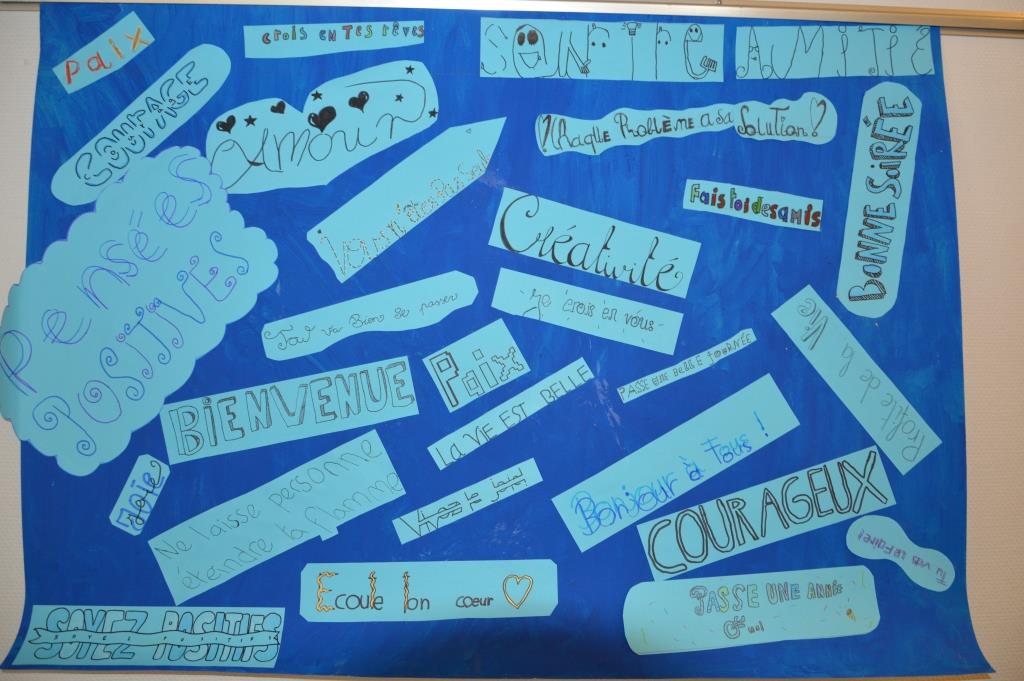 paix
CROIS EN TES RÊVES
SOURIRE
AMITIÉ
COURAGE
Amour
Chaque Problème a sa Solution !
BONNE SOIRÉE
Pensées
POSITIVES
Fais toi des amis
Créativité
Tout va Bien se passer
- Je crois en vous -
Profite de la Vie
BIENVENUE
Paix
LA VIE EST BELLE
PASSE UNE BELLE JOURNÉE
Bonjour à Tous !
Joie
Ne laisse personne
éteindre ta flamme
Vivez
COURAGEUX
Tu vas le faire !
Ecoute ton coeur
PASSE UNE ANNÉE
SOYEZ POSITIFS
SOYEZ POSITIFS